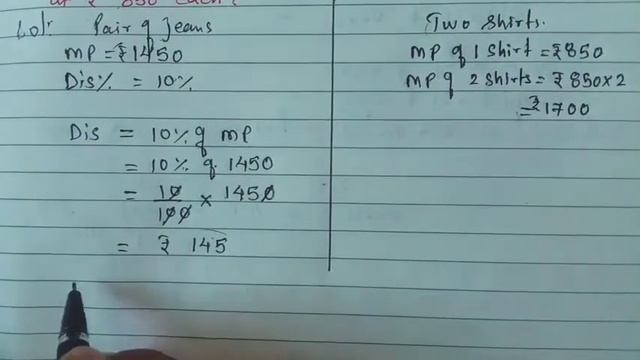 at ₹ 850 each?
Sol: Pair of Jeans
MP = ₹1450
Dis% = 10%
Dis = 10% of MP
= 10% of 1450
= 10/100 × 1450
= ₹ 145
Two Shirts.
MP of 1 Shirt = ₹850
MP of 2 Shirts = ₹850×2
= ₹1700